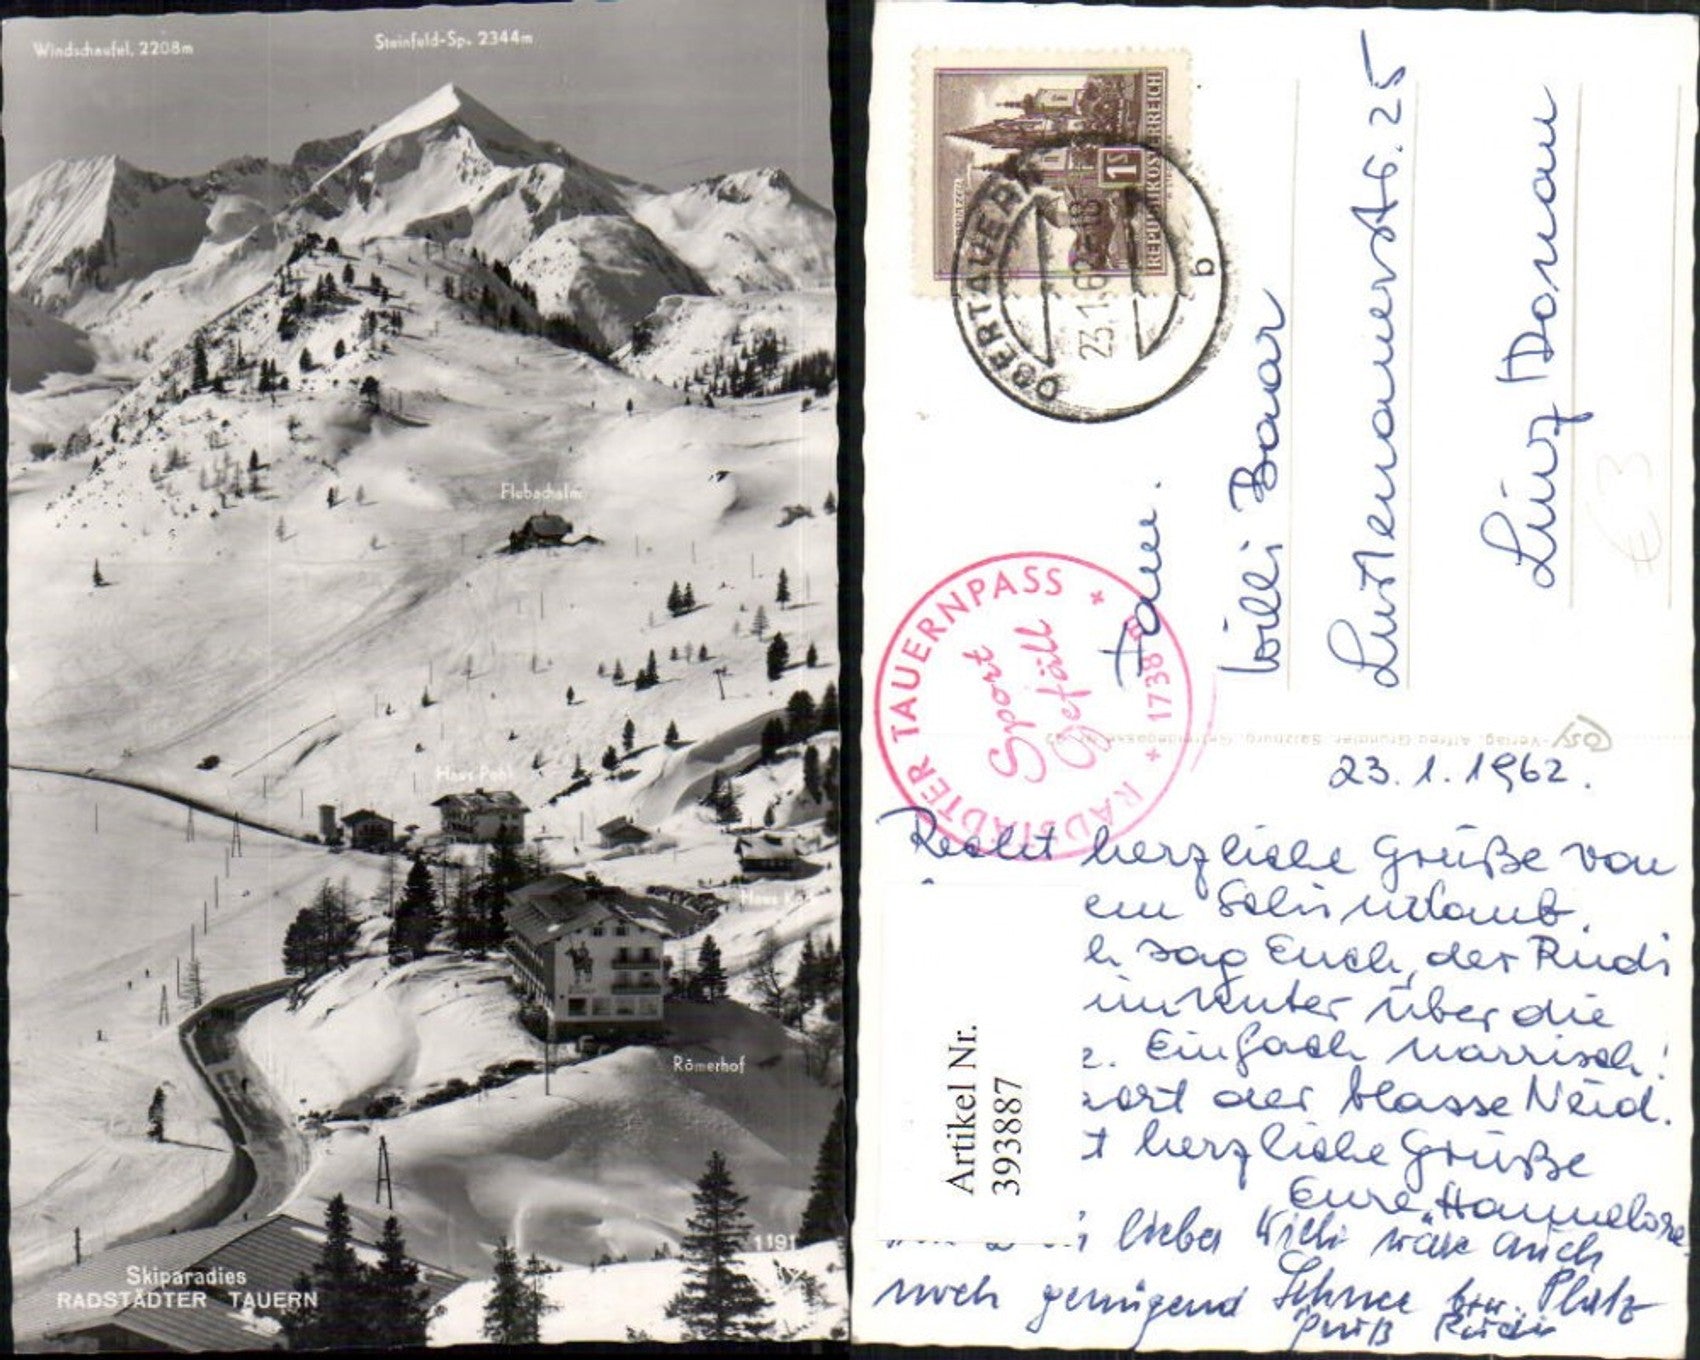 Windschaufel, 2208m
Steinfeld-Sp. 2344m
Flubachalm
Haus Pohl
Haus K
Römerhof
1191
Skiparadies
RADSTÄDTER TAUERN
REPUBLIK ÖSTERREICH
1 S
OBERTAUERN
23.1.62-18
b
RADSTÄDTER TAUERNPASS
* 1738 m *
Sport
Gefäll
Fam.
Willi Baar
Lustenauerstr. 25
Linz / Donau
€3
-Verlag, Alfred Gründler, Salzburg,
23.1.1962.
Recht herzliche Grüße von
em Schiurlaub.
h sag Euch, der Rudi
hinunter über die
Einfach narrisch!
der blasse Neid.
t herzliche Grüße
Eure Hannelore
lieber Willi wäre auch
noch genügend Schnee bzw. Platz
Gruß Rudi
Artikel Nr.
393887